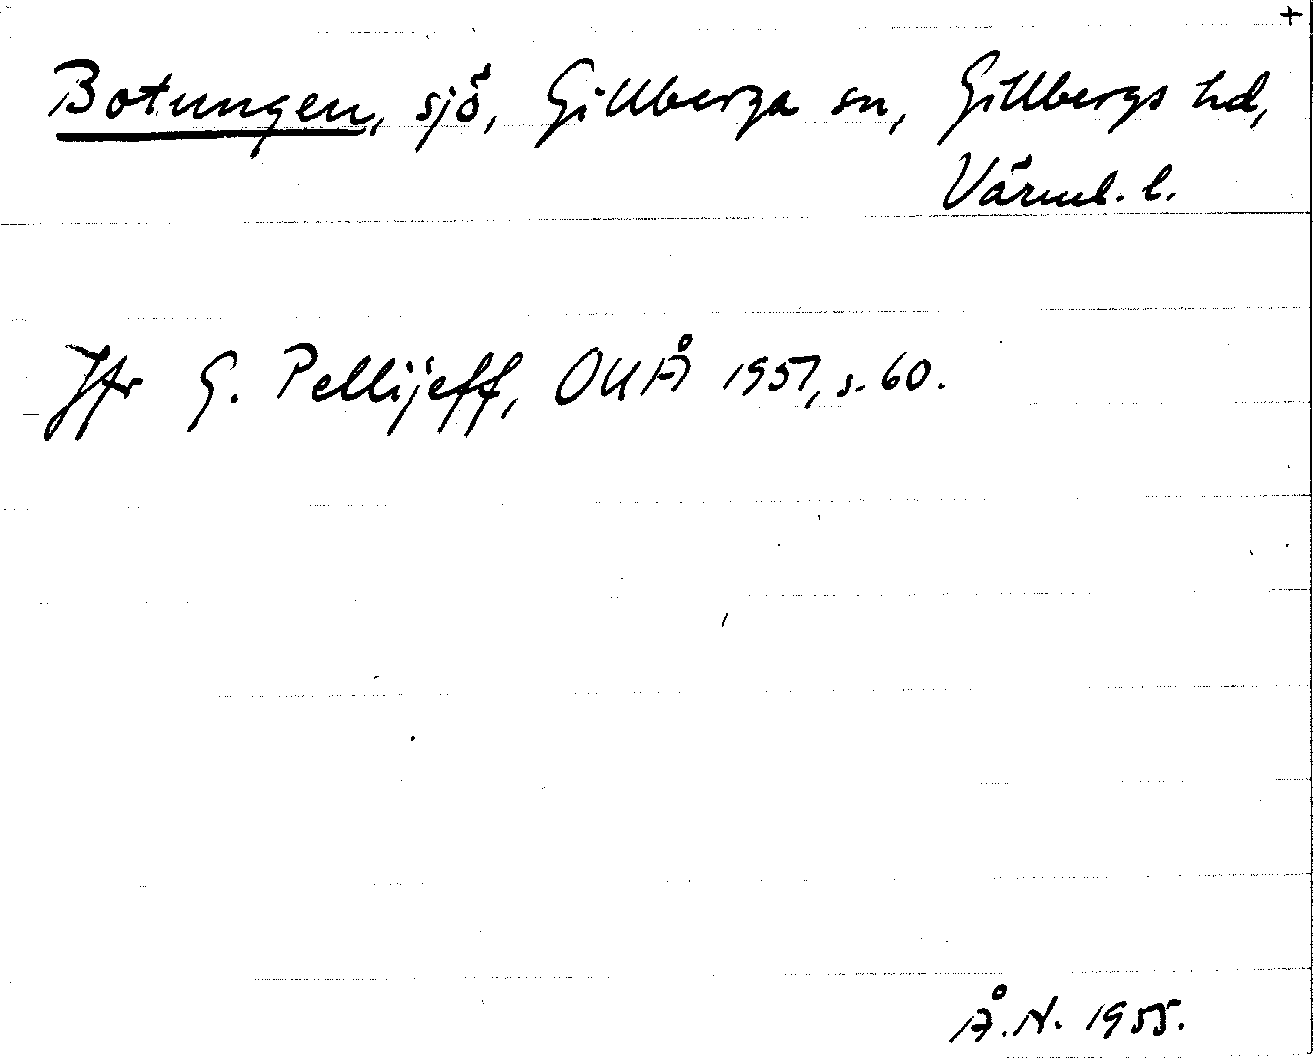 +
Botungen, sjö, Gillberga sn, Gillbergs hd,
Värml. l.
Jfr G. Pellijeff, OUÅ 1951, s. 60.
Å.N. 1955.